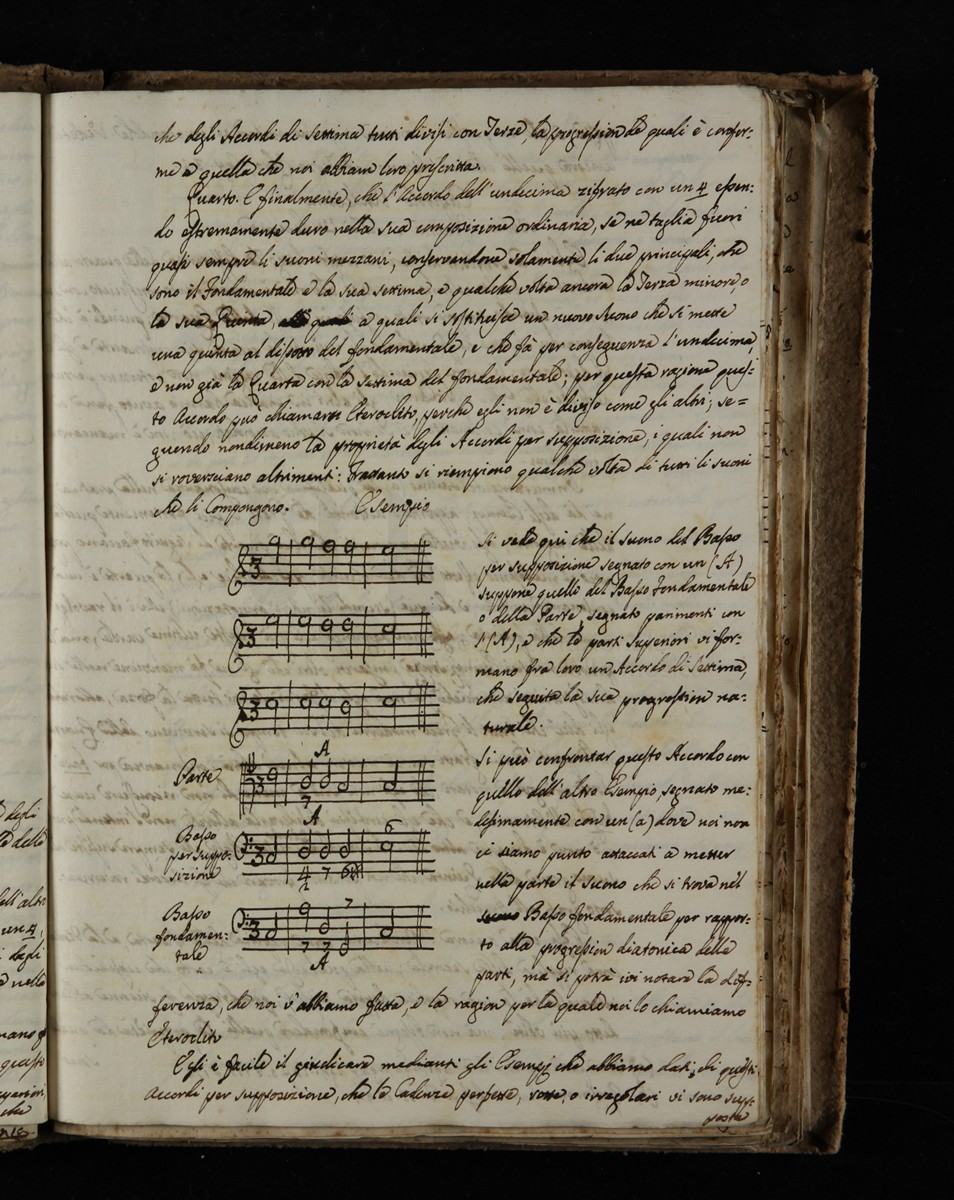 che degli Accordi di settima tutti divisi con Terze, la progression de quali è confor-
me a quella che noi abbiam loro prescritta.
Quarto. E finalmente, che l'Accordo dell'undecima zifrato con un 4 essen:
do estremamente duro nella sua composizione ordinaria, se ne taglia fuori
quasi sempre li suoni mezzani, conservandone solamente li due principali, che
sono il fondamentale e la sua settima, e qualche volta ancora la Terza minore, o
la sua Quinta, a quali si sostituisce un nuovo suono che si mette
una quinta al disotto del fondamentale, e che fà per conseguenza l'undecima,
e non già la Quarta con la settima del fondamentale; per questa ragione ques-
to Accordo può chiamarsi Eteroclito, perchè egli non è diviso come gli altri; se=
guendo nondimeno la proprietà degli Accordi per supposizione, i quali non
si roversciano altrimenti: si riempiono qualche volta di tutti li suoni
che li Compongono. Esempio
Si vede qui che il suono del Basso
per supposizione segnato con un (A)
suppone quello del Basso fondamentale
o della Parte, segnato parimenti con
(A), e che le parti superiori vi for-
mano fra loro un Accordo di Settima,
che seguita la sua progression na:
turale.
A
Parte
7
A
Si può confrontar questo Accordo con
quello dell'altro Esempio, segnato me:
desimamente con un (a) dove noi non
ci siamo punto attaccati a metter
nella parte il suono che si trova nel
Basso fondamentale per rappor-
to alla progression diatonica delle
parti, mà si potrà ivi notare la dif-
Basso
per suppo:
sizione
6
4 7 6
2
Basso
fondamen:
tale
7
7 7
A
ferenza, che noi v'abbiamo fatta, e la ragion per la quale noi lo chiamiamo
Eteroclito
Egli è facile il giudicare medianti gli Esempj che abbiamo dati, di questi
Accordi per supposizione, che le Cadenze perfette, rotte, o irregolari vi sono sup-
poste